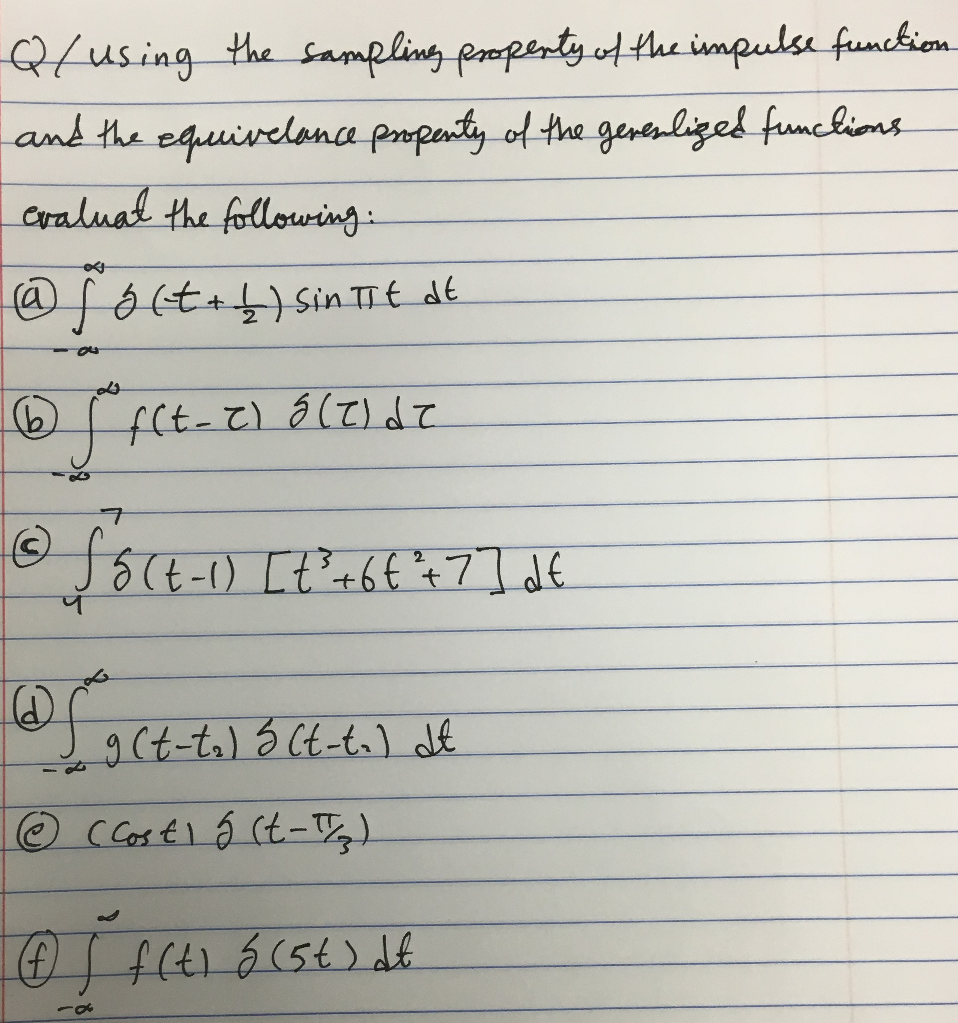 Q/ using the sampling property of the impulse function
and the equivelance property of the generlized functions
evaluat the following:
ⓐ ∫_{-∞}^{∞} δ(-t + 1/2) sin πt dt
ⓑ ∫_{-∞}^{∞} f(t-τ) δ(τ) dτ
ⓒ ∫_{4}^{7} δ(t-1) [t³+6t²+7] dt
ⓓ ∫_{-∞}^{∞} g(t-t₂) δ(t-t₂) dt
ⓔ (cos t) δ(t-π/3)
ⓕ ∫_{-∞}^{∞} f(t) δ(5t) dt